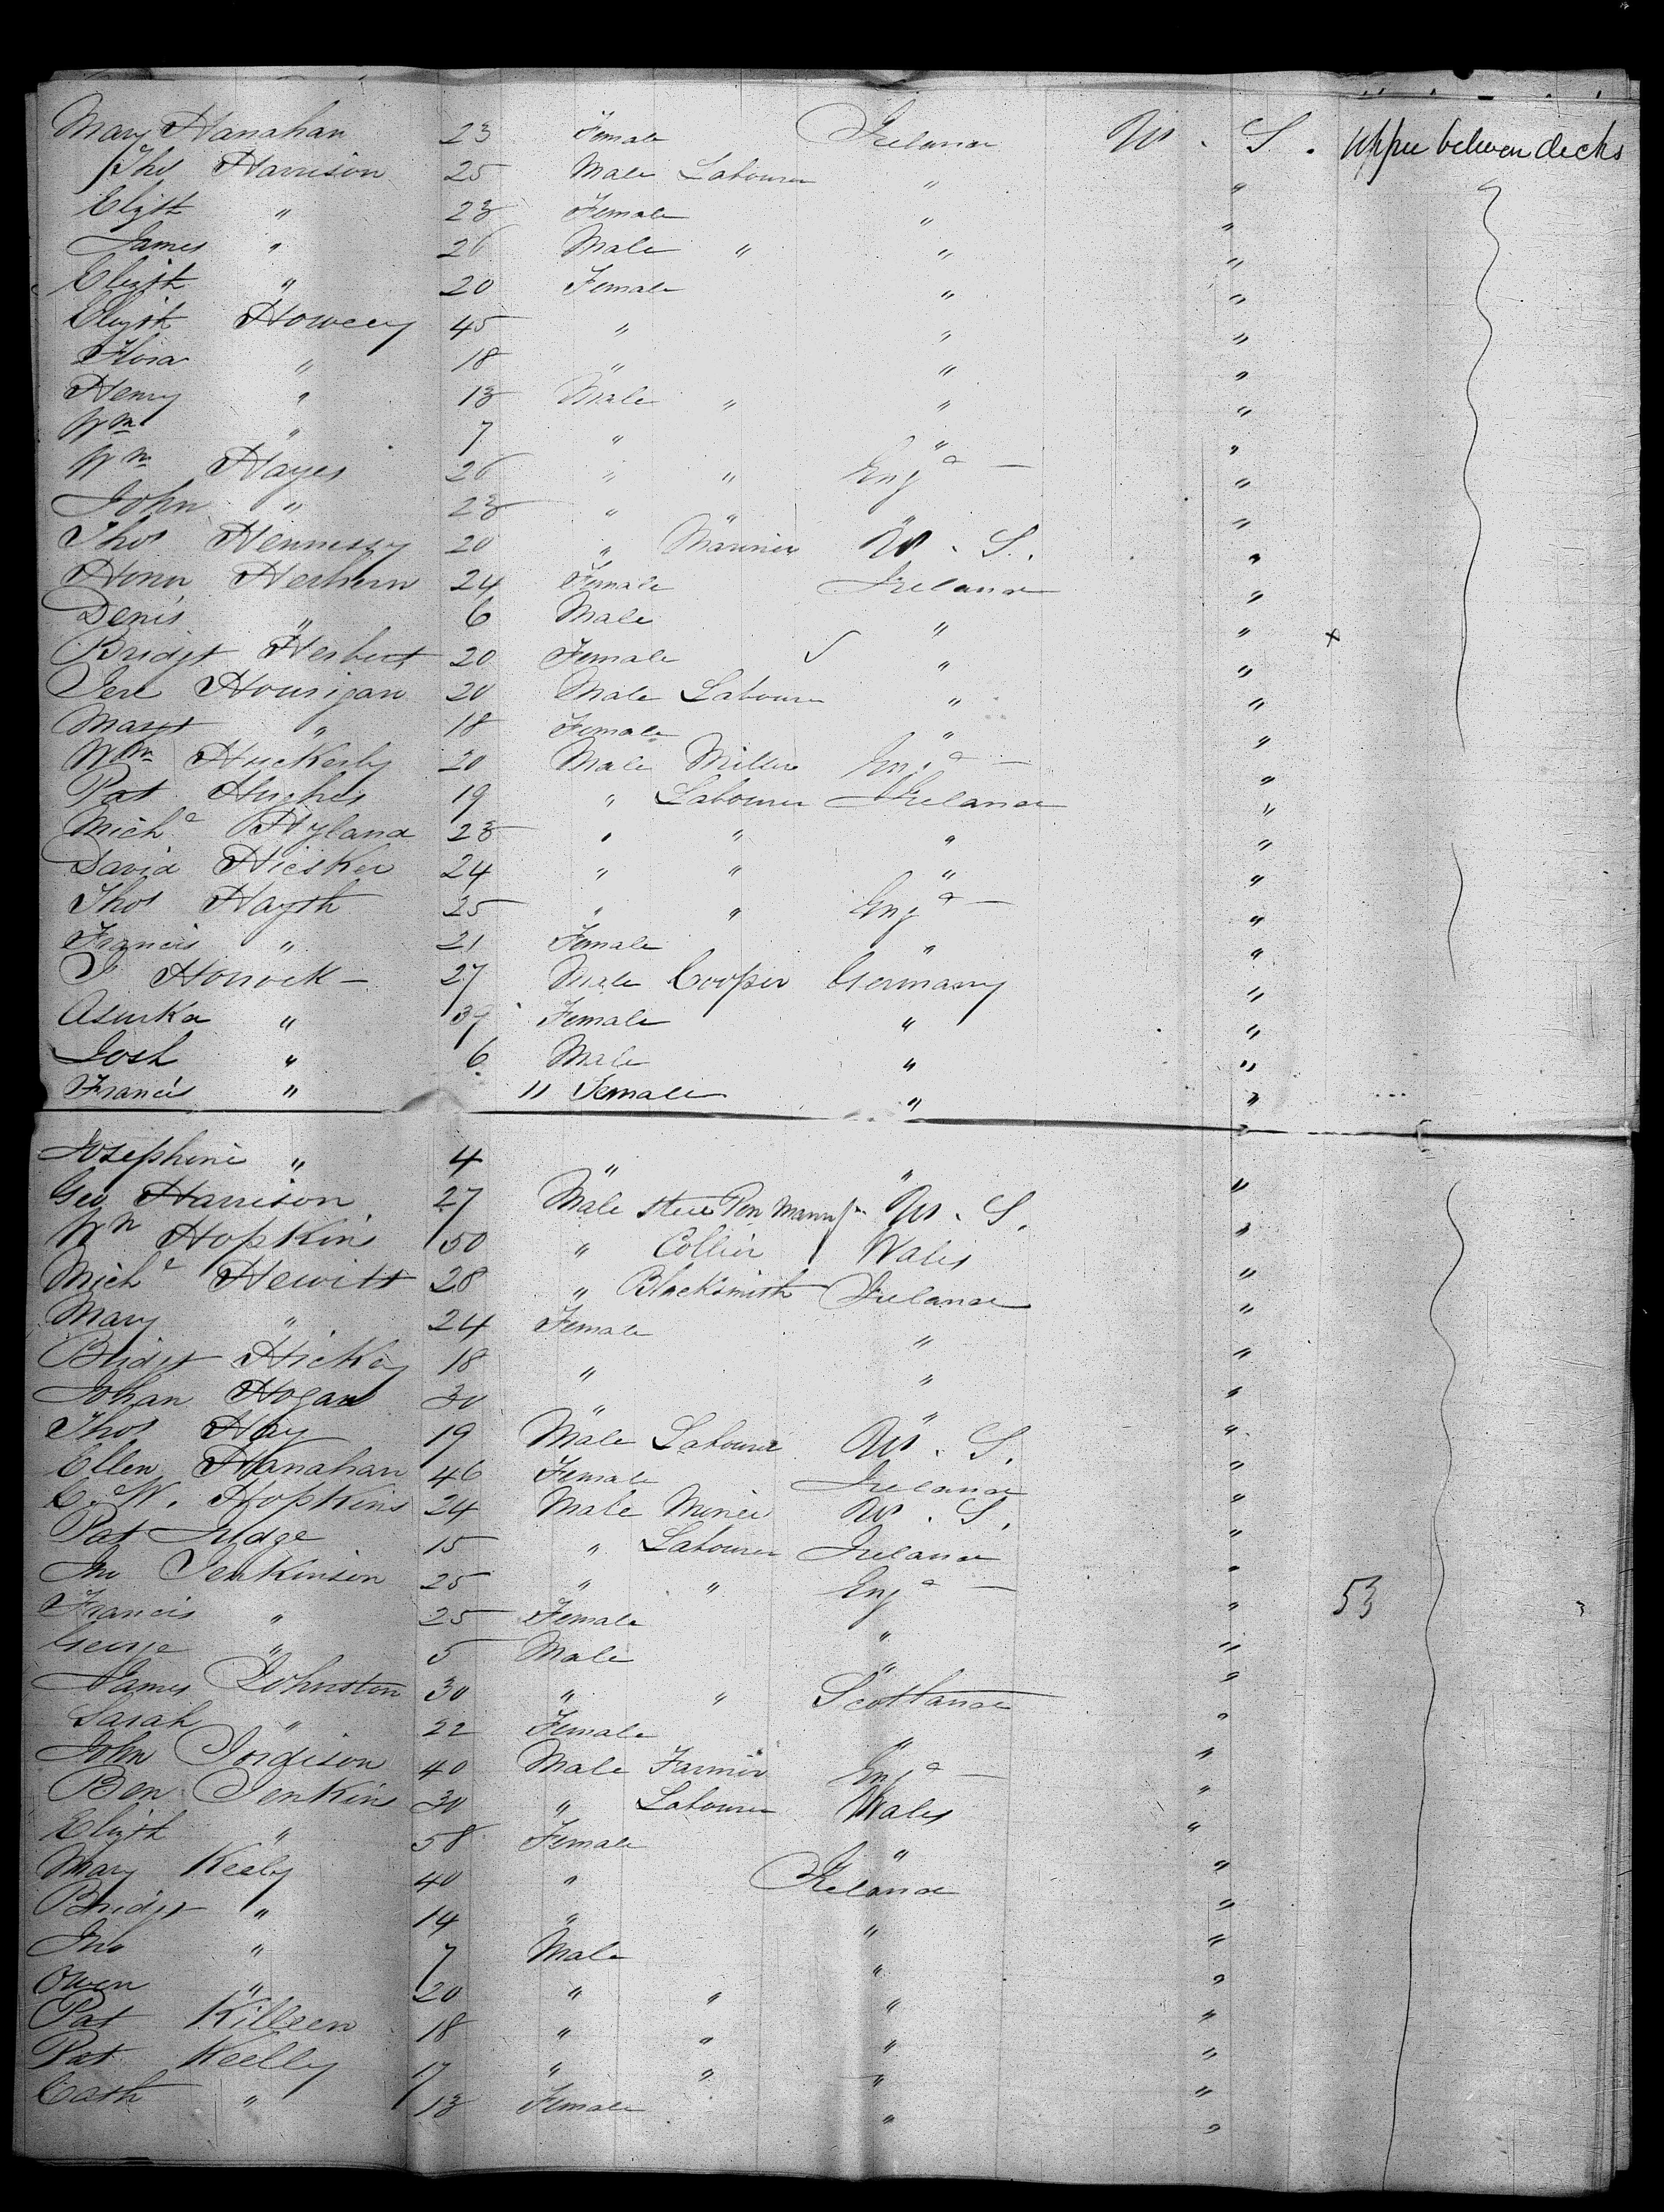 Mary Hanahan 23 Female Ireland U . S . upper between decks
Thos Harrison 25 Male Labourer " "
Elizth " 23 Female " "
James " 26 Male " " "
Elizth " 20 Female " "
Elizth 45 " " "
Flora " 18 " " "
Henry " 13 Male " " "
Wm " 7 " " "
Wm Hayes 26 " " Engd — "
John " 23 " " " "
Thos Hennessy 20 " Mariner U . S . "
24 Female Ireland "
Denis " 6 Male " " x
Bridgt Herbert 20 Female " "
Jere Hourigan 20 Male Labourer " "
Margt " 18 Female " "
Wm Huckerby 20 Male Miller Engd — "
Pat Hughes 19 " Labourer Ireland "
Michl Hyland 23 " " " "
David 24 " " " "
Thos 25 " " Engd — "
Francis " 21 Female " "
27 Male Cooper Germany "
" 39 Female " "
Josh " 6 Male " "
Francis " 11 Female " "
Josephine " 4 " " "
Geo Harrison 27 Male Steel Pen Manufr U . S . "
Wm Hopkins 50 " Collier Wales "
Michl Hewitt 28 " Blacksmith Ireland "
Mary " 24 Female " "
Bridgt Hickey 18 " " "
Johan Hogan 30 " " "
Thos Hay 19 Male Labourer U . S . "
Ellen Hanahan 46 Female Ireland "
C. W. Hopkins 24 Male Miner U . S . "
Pat Judge 15 " Labourer Ireland "
Jno Jenkinson 25 " " Engd — "
Francis " 25 Female " " 53
George " 5 Male " "
James Johnston 30 " " Scotland "
Sarah " 22 Female " "
John Jordison 40 Male Farmer Engd — "
Ben Jenkins 30 " Labourer Wales "
Elizth " 58 Female " "
Mary 40 " Ireland "
Bridgt " 14 " " "
Jno " 7 Male " "
Owen " 20 " " " "
Pat Killeen 18 " " " "
Pat Keelly 17 " " " "
Cath " 13 Female " "